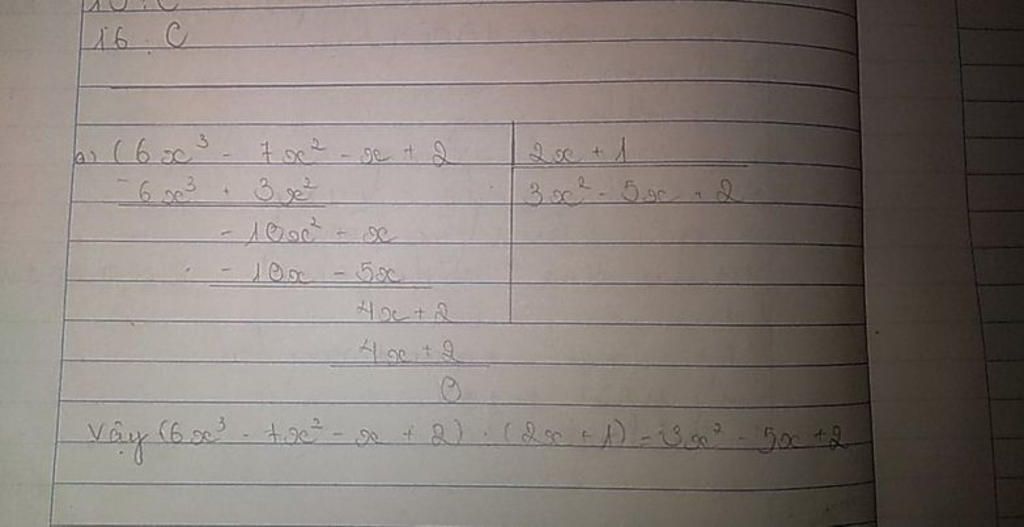 16 : C
a) (6x³ - 7x² - x + 2 | 2x + 1
- 6x³ + 3x² | 3x² - 5x + 2
- 10x² - x
- 10x - 5x
4x + 2
4x + 2
0
Vậy (6x³ - 7x² - x + 2) : (2x + 1) = 3x² - 5x + 2